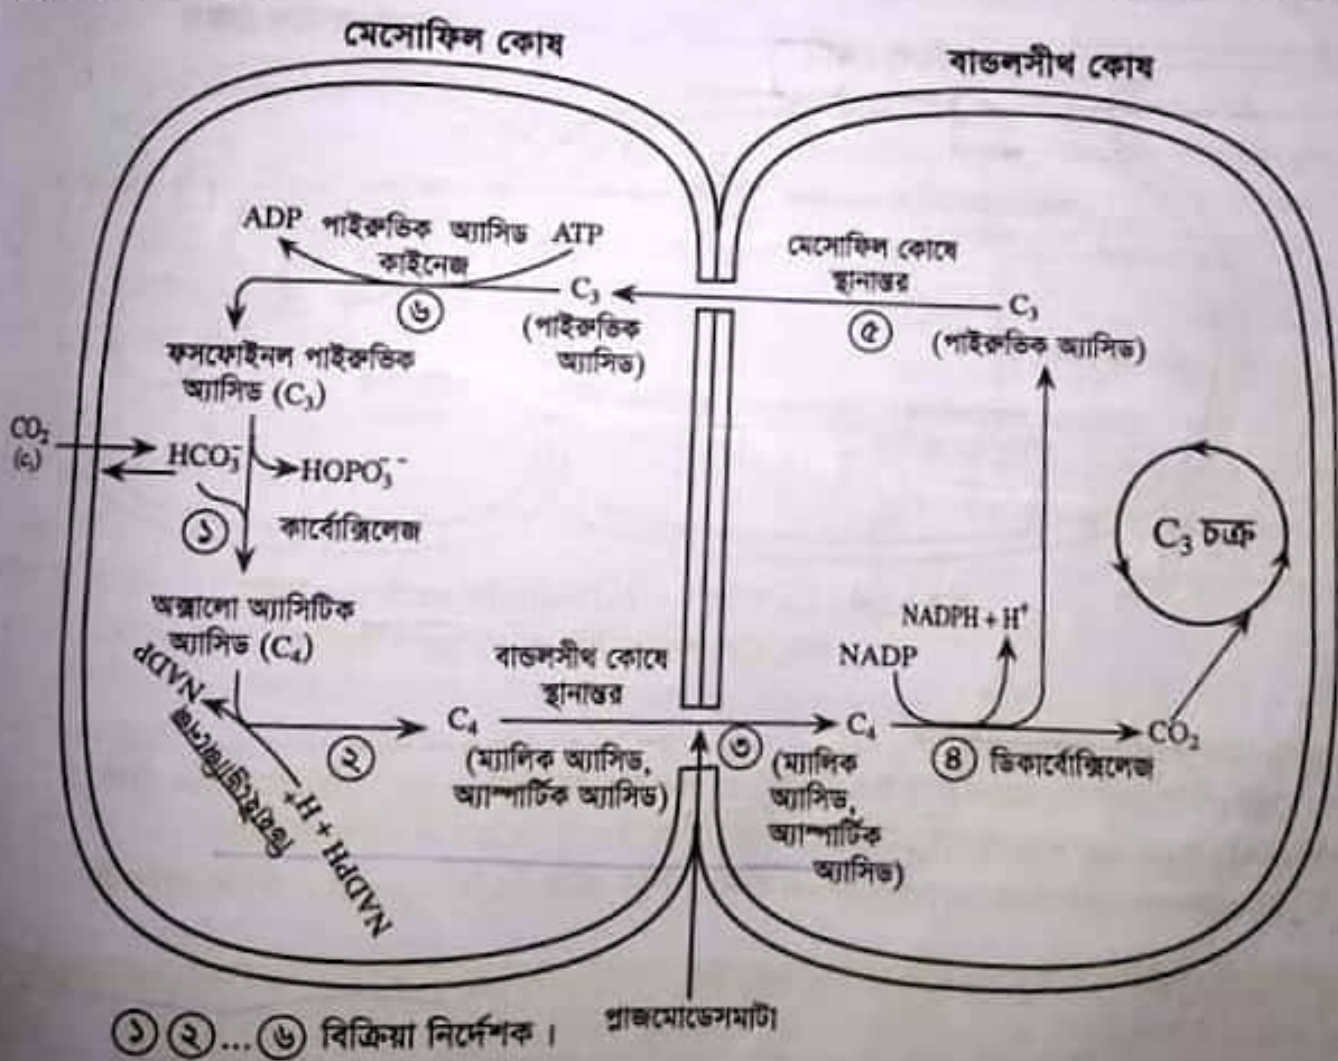 মেসোফিল কোষ
বান্ডলসীথ কোষ
ADP পাইরুভিক অ্যাসিড ATP
কাইনেজ
৬
C₃
(পাইরুভিক
অ্যাসিড)
মেসোফিল কোষে
স্থানান্তর
৫
C₃
(পাইরুভিক অ্যাসিড)
ফসফোইনল পাইরুভিক
অ্যাসিড (C₃)
CO₂
HCO₃⁻
HOPO₃⁻⁻
১
কার্বোক্সিলেজ
C₃ চক্র
অক্সালো অ্যাসিটিক
অ্যাসিড (C₄)
NADP
ডিহাইড্রোজিনেজ
NADPH + H⁺
২
C₄
(ম্যালিক অ্যাসিড,
অ্যাস্পার্টিক অ্যাসিড)
বান্ডলসীথ কোষে
স্থানান্তর
৩
C₄
(ম্যালিক
অ্যাসিড,
অ্যাস্পার্টিক
অ্যাসিড)
NADP
NADPH + H⁺
৪ ডিকার্বোক্সিলেজ
CO₂
প্লাজমোডেসমাটা
১ ২ ... ৬ বিক্রিয়া নির্দেশক।